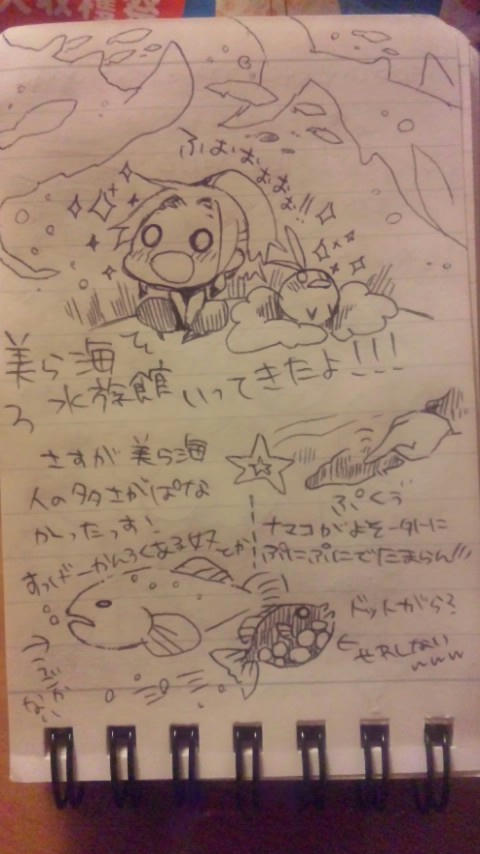 大収穫祭
ふおぉぉぉぉぉ!!
美ら海
水族館いってきたよ!!!
さすが美ら海
人の多さがぱな
かったっす!
すっげーかんろくある奴とか
ぷくぅ
ナマコがよそーガイに
ぷにぷにでたまらん!!!
ドットがら?
←せわしない
www
→うごか
ない